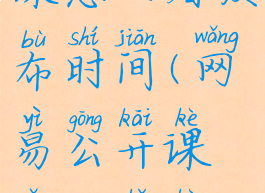 bù shí jiān wǎng
布时间(网
yì gōng kāi kè
易公开课